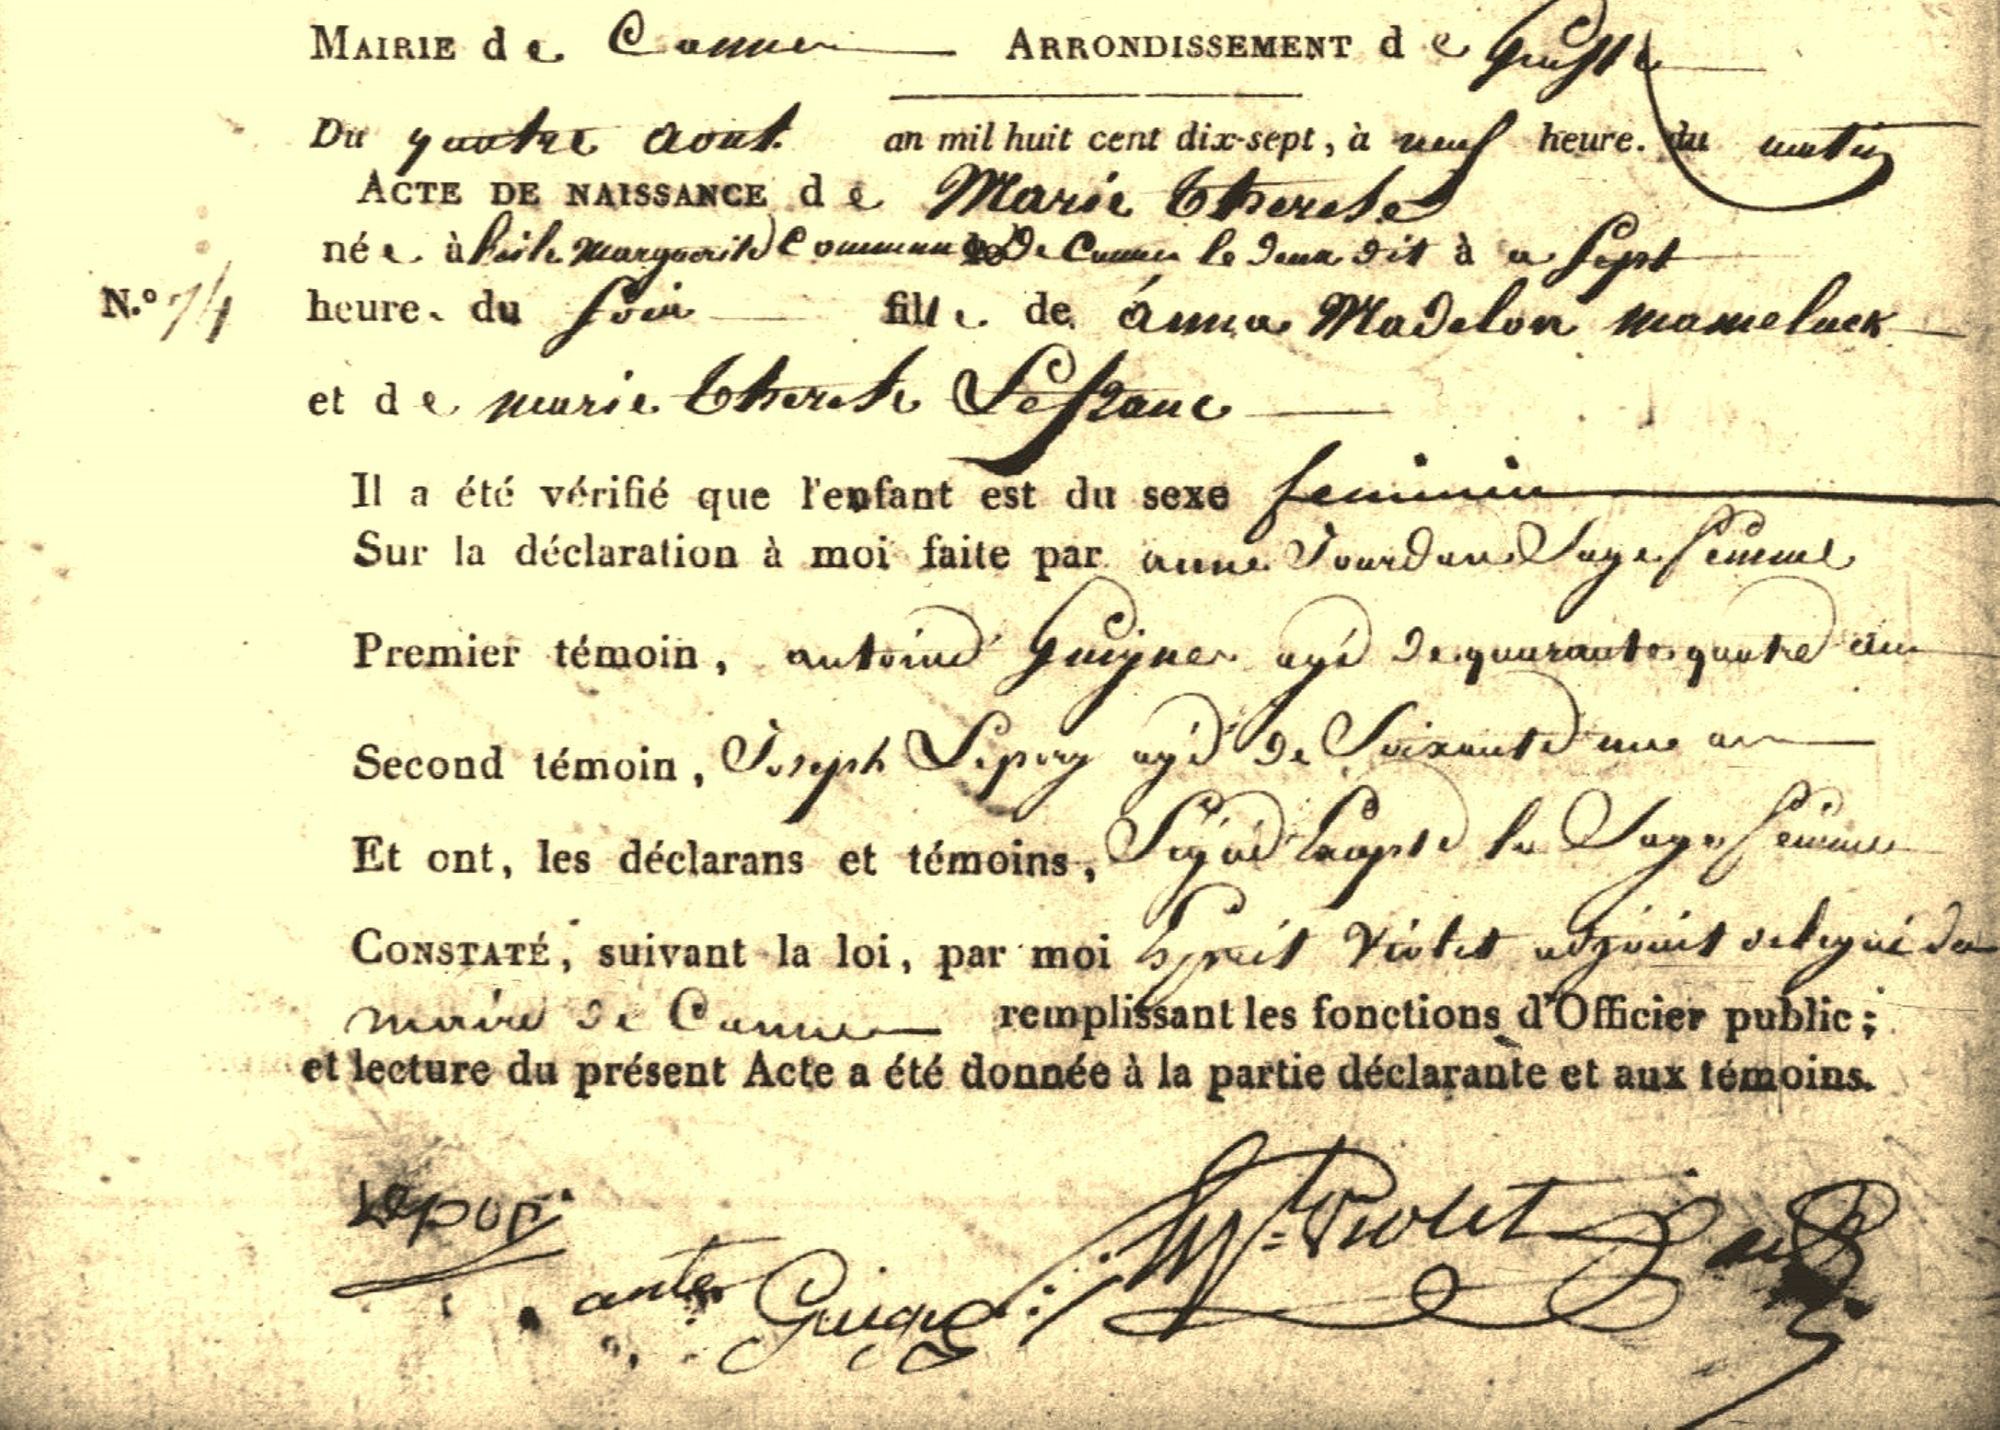 MAIRIE de Cannes ARRONDISSEMENT de Grasse
Du quatre aout an mil huit cent dix-sept, à neuf heure. du matin
ACTE DE NAISSANCE de Marie Therese
née à l'isle Marguerite Commune de Cannes le deux dit à a Sept
N.º 74 heure. du soir fille de anna Madelon mameluck
et de marie therese Lefranc
Il a été vérifié que l'enfant est du sexe feminin
Sur la déclaration à moi faite par anne Jourdan Sage femme
Premier témoin, antoine Guigues agé de quarante quatre ans
Second témoin, Joseph Lepory agé de Soixante une an
Et ont, les déclarans et témoins, Signé Excepté la Sage femme
CONSTATÉ, suivant la loi, par moi Esprit Violet adjoint delegué du
maire de Cannes remplissant les fonctions d'Officier public;
et lecture du présent Acte a été donnée à la partie déclarante et aux témoins.
Lepori
ante Guigues
Violet